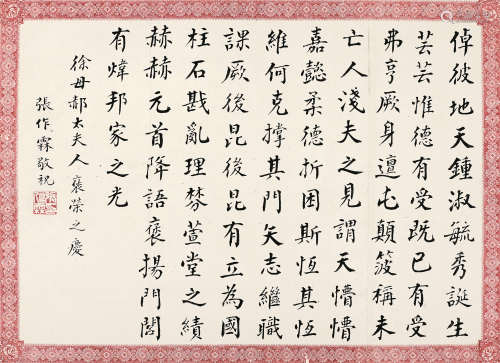 倬彼地天鍾淑毓秀誕生
芸芸惟德有受既已有受
弗亨厥身邅屯顛簸稱未
亡人淺夫之見謂天懵懵
嘉懿柔德折困斯恆其恆
維何克撑其門矢志繼職
課厥後昆後昆有立為國
柱石戡亂理棼萱堂之績
赫赫元首降語褒揚門閭
有煒邦家之光
徐母郝太夫人褒榮之慶
張作霖敬祝